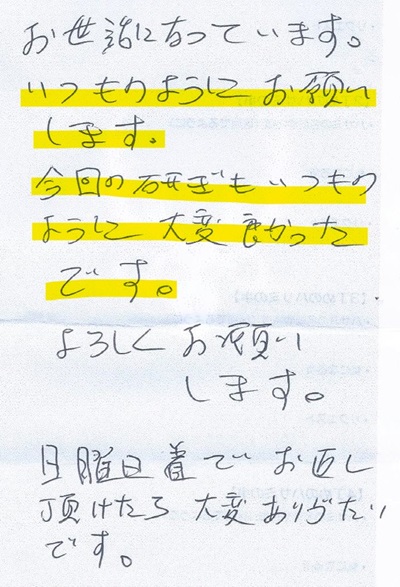 お世話になっています。
いつものようにお願い
します。
今回の研ぎもいつもの
ように大変良かった
です。
よろしくお願い
します。
日曜日着でお返し
頂けたら大変ありがたい
です。